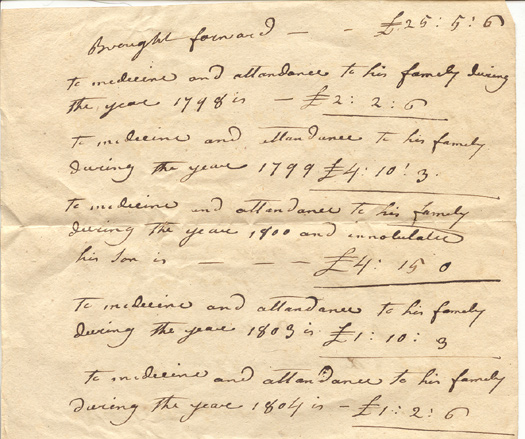 Brought forward — - £25: 5: 6
to medicine and attendance to his family during
the year 1798 is — £2: 2: 6
to medicine and attendance to his family
during the year 1799 £4: 10: 3.
to medicine and attendance to his family
during the year 1800 and innoculatig
his son is — — — £4: 15 0
to medicine and attendance to his family
during the year 1803 is £1: 10: 3
to medicine and attendance to his family
during the year 1804 is - £1: 2: 6